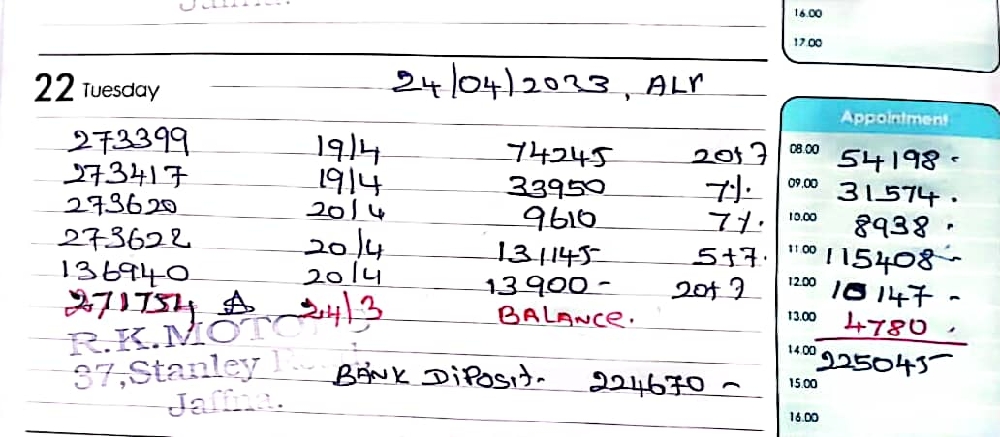 16.00
17.00
22 Tuesday 24/04/2023, ALY
Appointment
273399 19/4 74245 20+7 08.00 54198-
273417 19/4 33950 7%. 09.00 31574.
273620 20/4 9610 7%. 10.00 8938.
273622 20/4 131145 5+7. 11.00 115408-
136940 20/4 13900- 20+7 12.00 10147-
271754 24/3 BALANCE. 13.00 4780.
R.K.MOTO
14.00 225045-
37,Stanley BANK DiPOSit. 224670- 15.00
Jaffna.
16.00